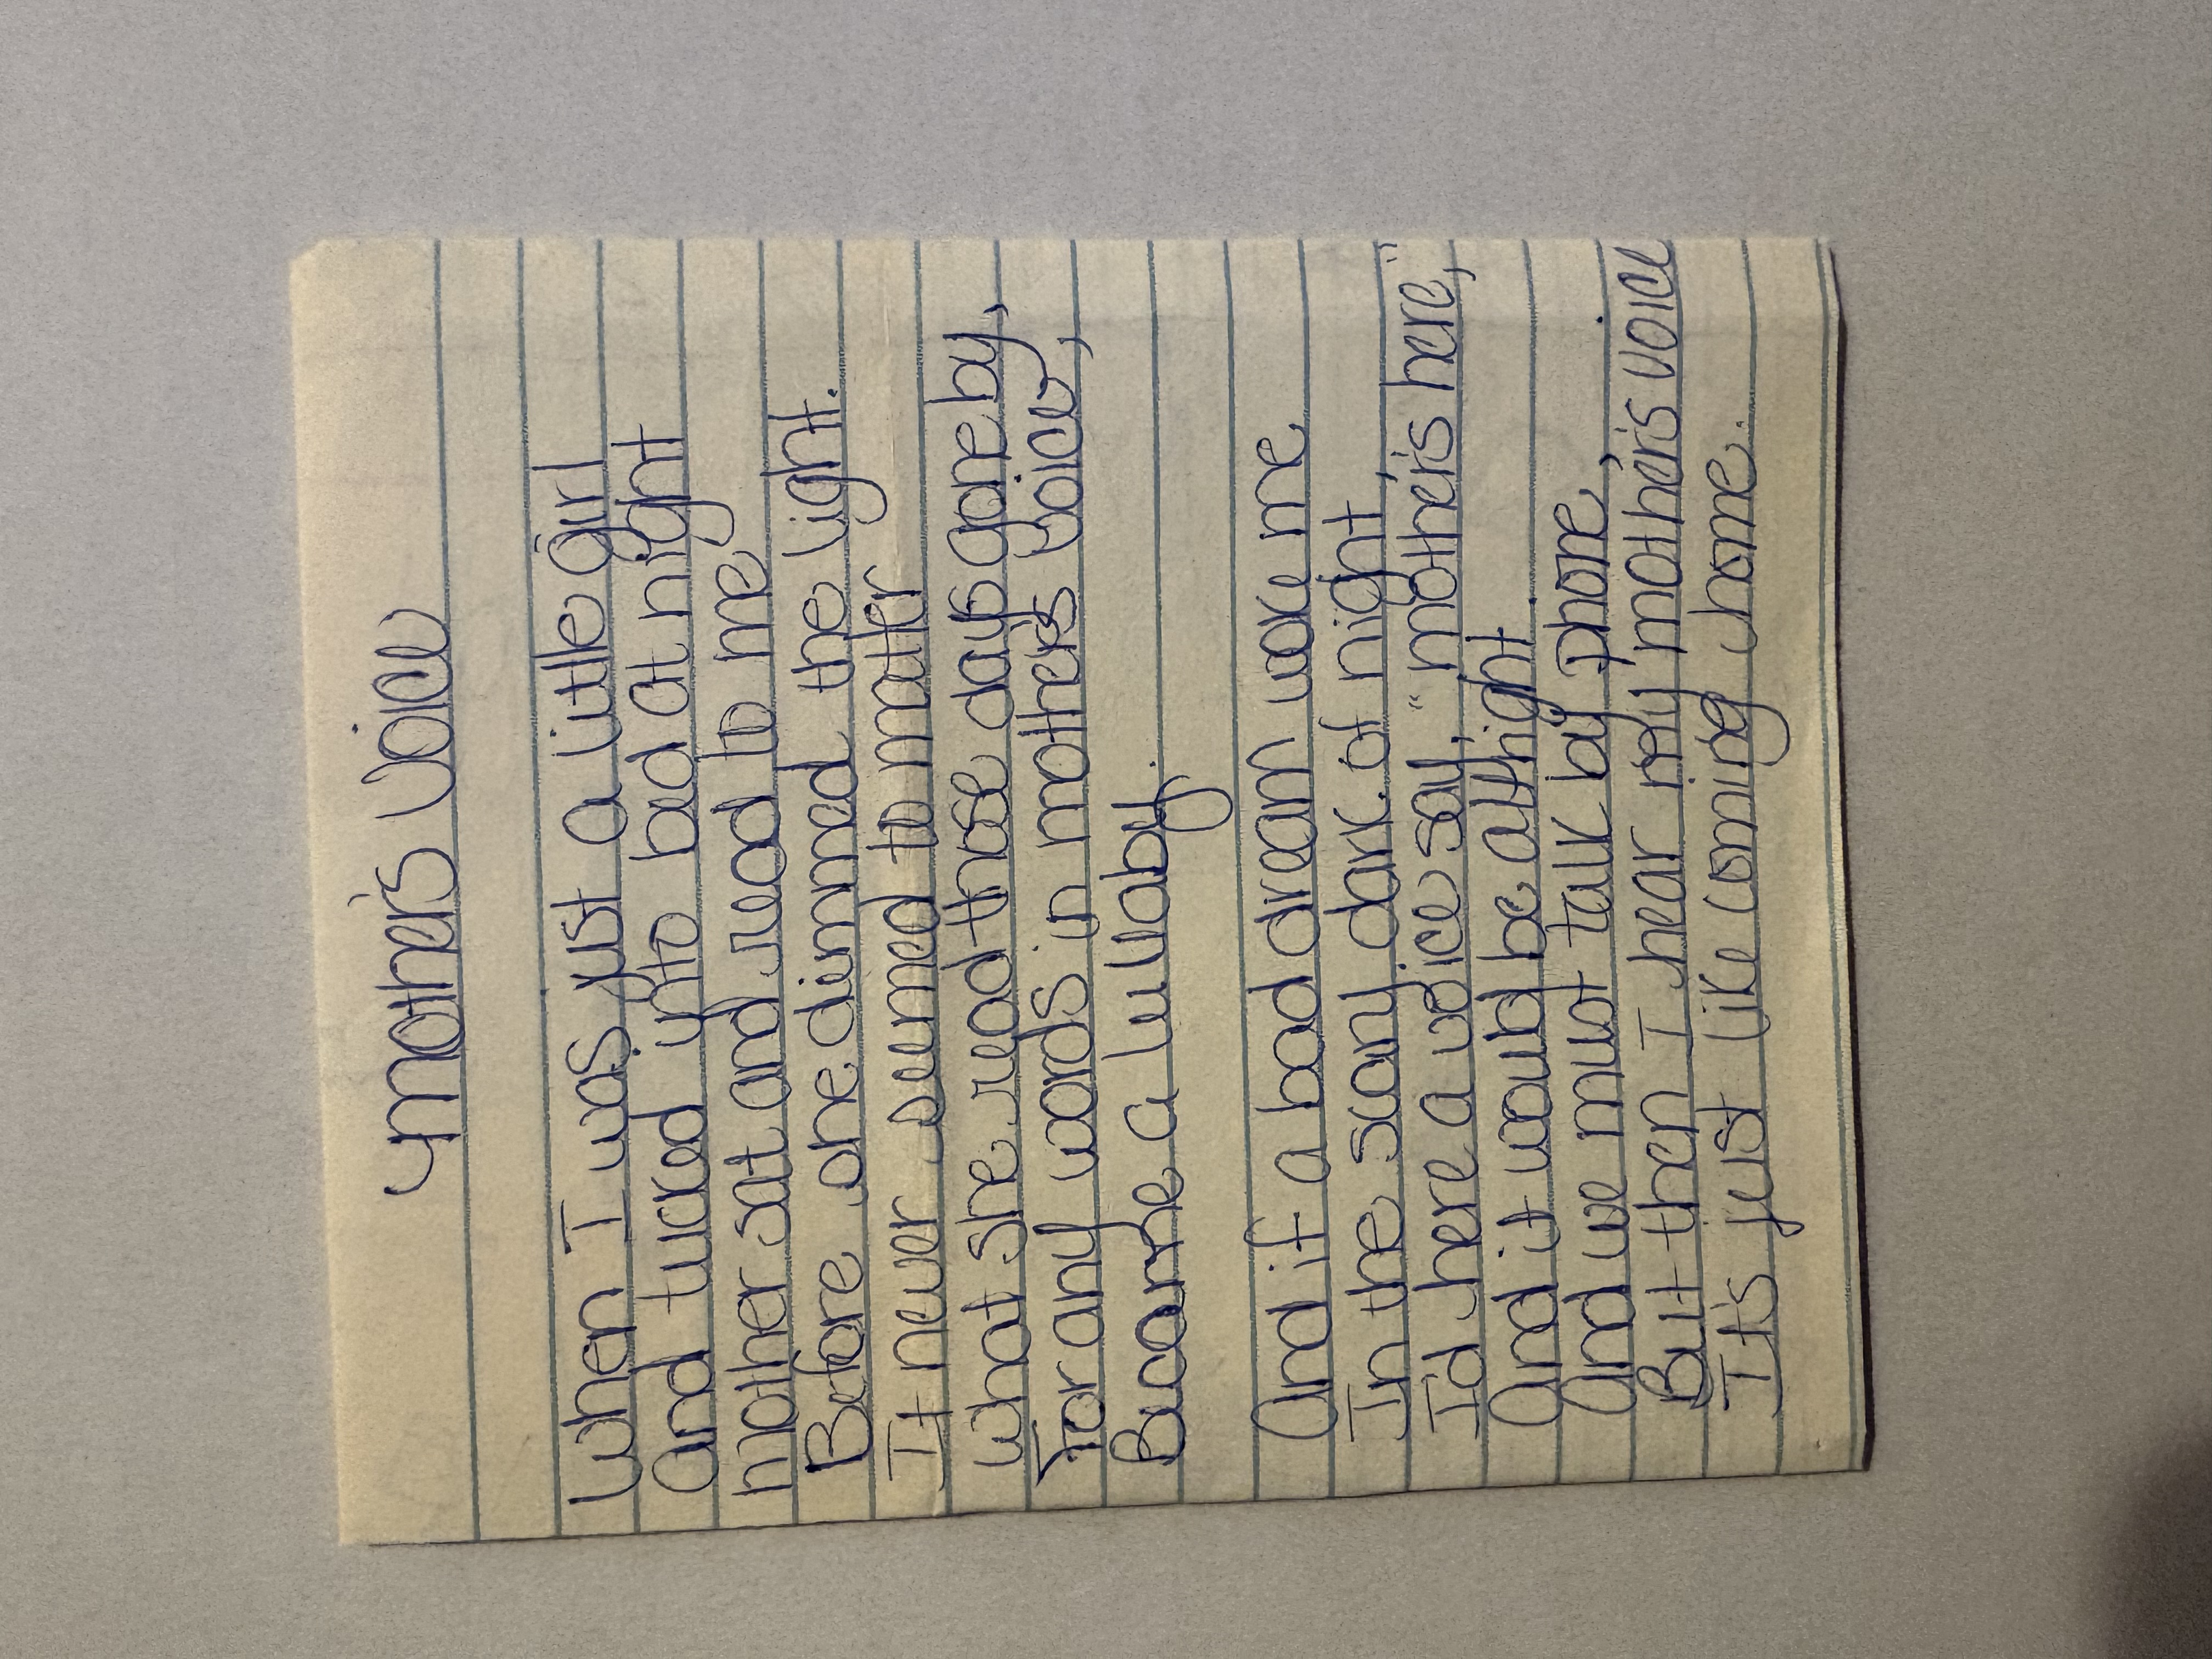 Mother's Voice
When I was just a little girl
And tucked into bed at night
Mother sat and read to me
Before she dimmed the light.
It never seemed to matter
What she read those days gone by,
For any words in mother's voice,
Became a lullaby.
And if a bad dream woke me
In the scary dark of night,
I'd here a voice say, "mother's here,"
And it would be allright
And we must talk by phone,
But then I hear my mother's voice
It's just like coming home.